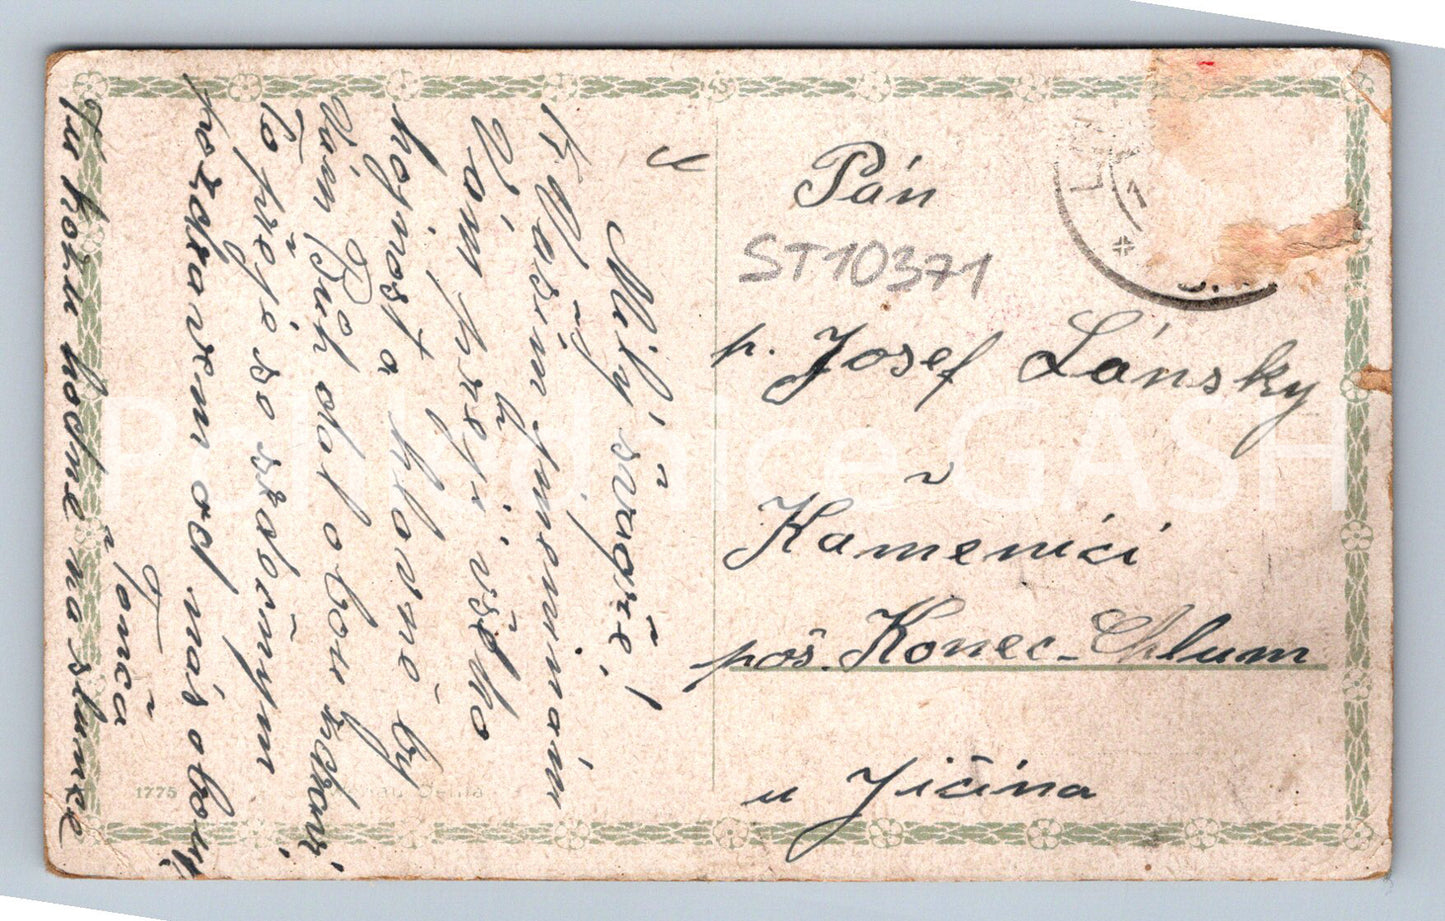 Milý švagře!
K Vašim jmeninám
Vám přeji všeho
hojnost a hlavně by
Vám Bůh dal obou zdraví,
To přeje se srdečným
pozdravem od nás obou!
Tonča
Tu kozu hodně na slunce
Pán
ST10371
p. Josef Lánský
Kamenici
poš. Konec-Chlum
u Jičína
1775
Pohlednice GASH